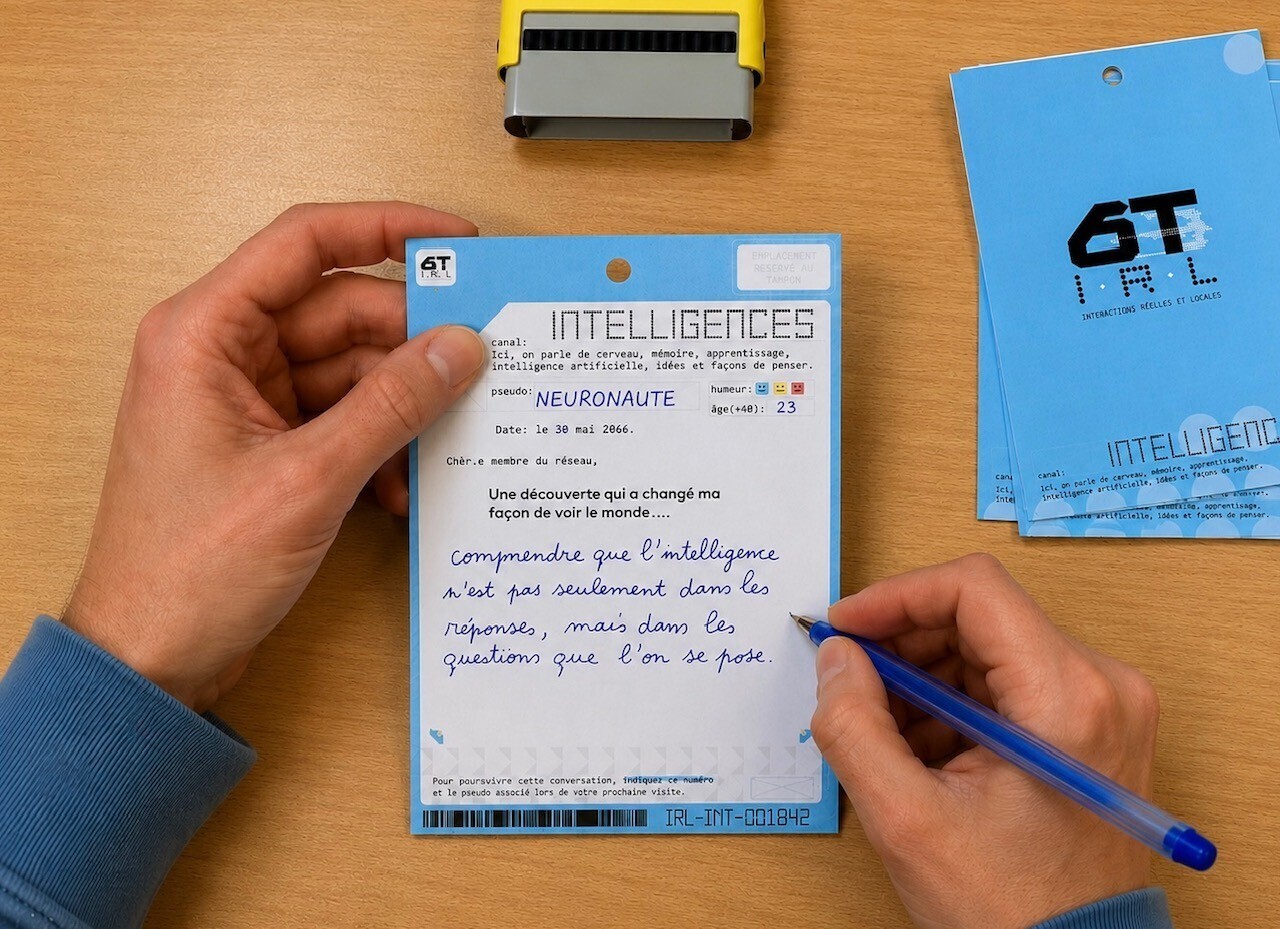 6T
I.R.L
EMPLACEMENT
RESERVÉ AU
TAMPON
INTELLIGENCES
canal:
Ici, on parle de cerveau, mémoire, apprentissage,
intelligence artificielle, idées et façons de penser.
pseudo: NEURONAUTE
humeur:
âge(+40): 23
Date: le 30 mai 2066.
Chèr.e membre du réseau,
Une découverte qui a changé ma
façon de voir le monde....
comprendre que l'intelligence
n'est pas seulement dans les
réponses, mais dans les
questions que l'on se pose.
Pour poursvivre cette conversation, indiquez ce numéro
et le pseudo associé lors de votre prochaine visite.
IRL-INT-001842
6T
I.R.L
INTERACTIONS RÉELLES ET LOCALES
INTELLIGENC
canal:
Ici, on parle de cerveau, mémoire, apprentissage,
intelligence artificielle, idées et façons de penser.
cana
Ici,
inte
apprentissage,
artificielle, idées et façons de penser.